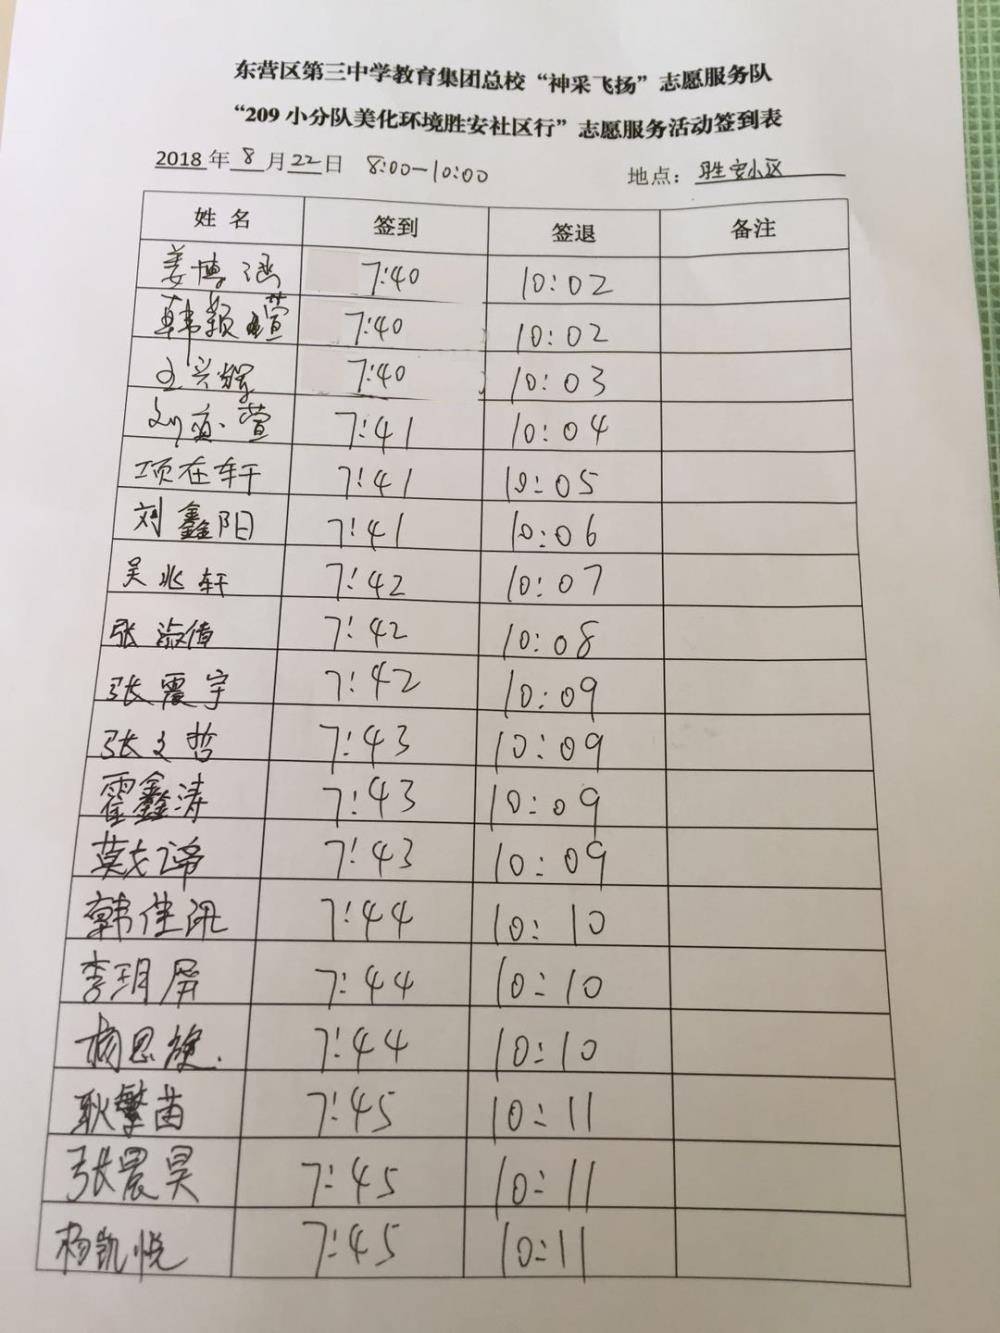 东营区第三中学教育集团总校“神采飞扬”志愿服务队
“209 小分队美化环境胜安社区行”志愿服务活动签到表
2018 年 8 月 22 日 8:00-10:00 地点：胜安小区
姓 名 签到 签退 备注
姜博涵 7:40 10:02
韩颖萱 7:40 10:02
王兴辉 7:40 10:03
刘 萱 7:41 10:04
项在轩 7:41 10:05
刘鑫阳 7:41 10:06
吴兆轩 7:42 10:07
张淑倩 7:42 10:08
张震宇 7:42 10:09
张文哲 7:43 10:09
霍鑫涛 7:43 10:09
7:43 10:09
韩佳讯 7:44 10:10
李玥屏 7:44 10:10
杨思旋 7:44 10:10
耿繁苗 7:45 10:11
张晨昊 7:45 10:11
杨凯悦 7:45 10:11